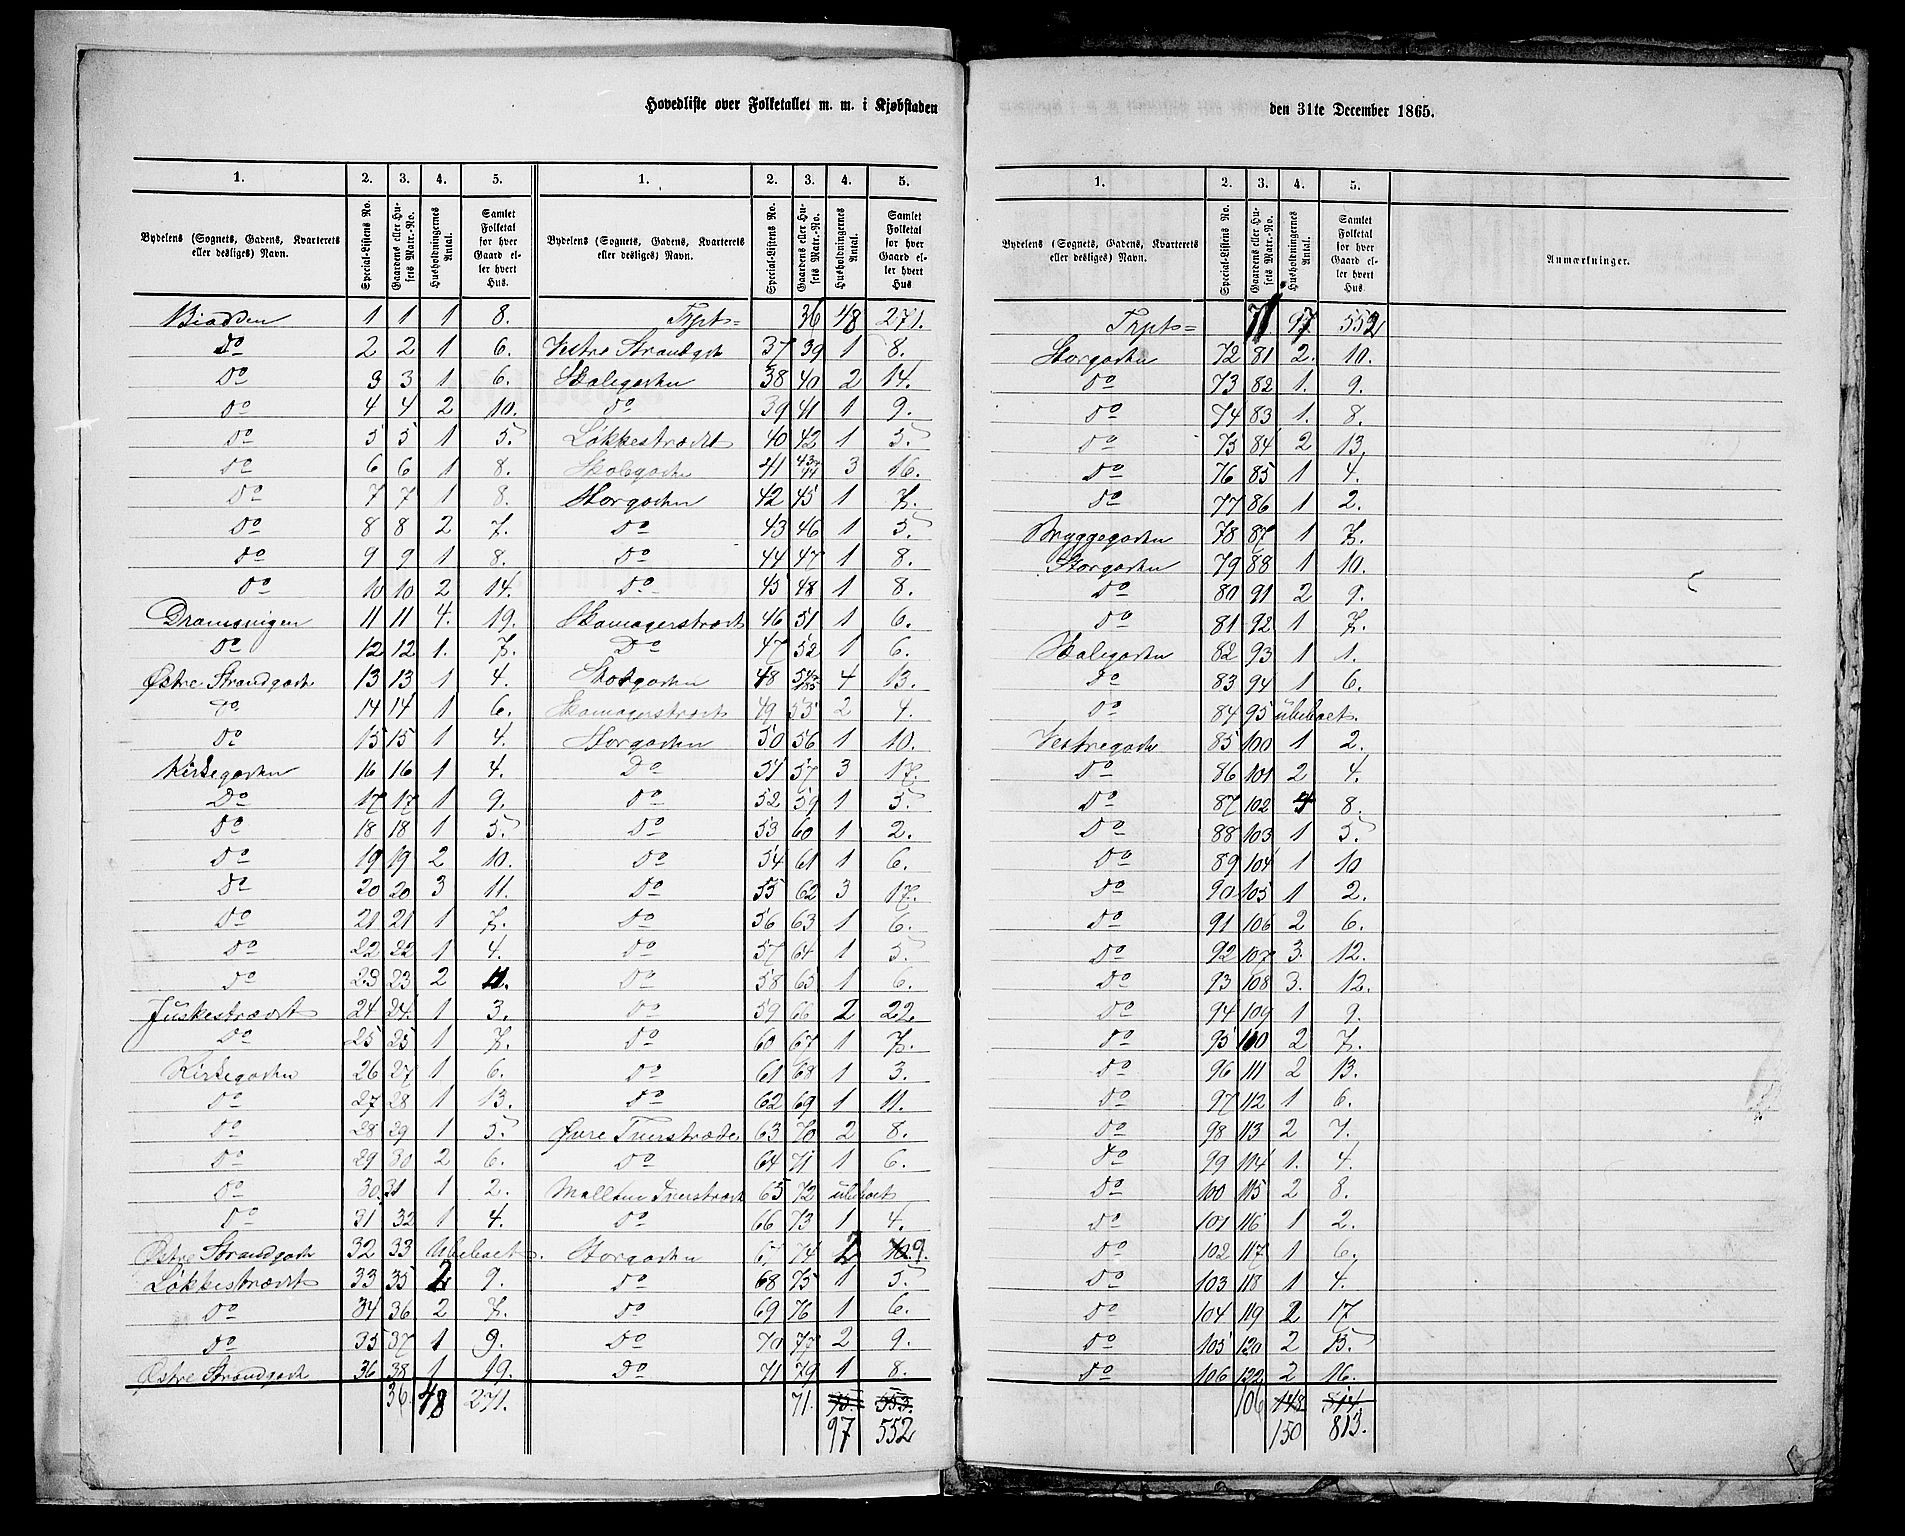 Hovedliste over Folketallet m. m. i Kjøbstaden
den 31te December 1865.
1. 2. 3. 4. 5.
Bydelens (Sognets, Gadens, Kvarterets eller desliges) Navn. Special-Listens No. Gaardens eller Husets Matr.-No. Husholdningernes Antal. Samlet Folketal for hver Gaard eller hvert Hus.
1 1 1 8.
Do 2 2 1 6.
Do 3 3 1 6.
Do 4 4 2 10.
Do 5 5 1 5.
Do 6 6 1 8.
Do 7 7 1 8.
Do 8 8 2 7.
Do 9 9 1 8.
Do 10 10 2 14.
11 11 4. 19.
Do 12 12 1. 7.
Østre Strandgade 13 13 1 4.
Do 14 14 1 6.
Do 15 15 1 4.
Kirkegaden 16 16 1 4.
Do 17 17 1 9.
Do 18 18 1 5.
Do 19 19 2 10.
Do 20 20 3 11.
Do 21 21 1 7.
Do 22 22 1 4.
Do 23 23 2 11.
24 24 1 3.
Do 25 25 1 7.
Kirkegaden 26 27 1 6.
Do 27 28 1 13.
Do 28 29 1 5.
Do 29 30 2 6.
Do 30 31 1 2.
Do 31 32 1 4.
Østre Strandgade 32 33 Ubeboet.
Løkkestrædet 33 35 2 9.
Do 34 36 2 7.
Do 35 37 1 9.
Østre Strandgade 36 38 1 19.
36. 48 271.
1. 2. 3. 4. 5.
Bydelens (Sognets, Gadens, Kvarterets eller desliges) Navn. Special-Listens No. Gaardens eller Husets Matr.-No. Husholdningernes Antal. Samlet Folketal for hver Gaard eller hvert Hus
Trpt= 36 48 271.
Vestre Strandgade 37 39 1 8.
Skolegaden 38 40 2 14.
Do 39 41 1 9.
Løkkestrædet 40 42 1 5.
Skolegaden 41 43 44 3 16.
Storgaden 42 45 1 7.
Do 43 46 1 5.
Do 44 47 1 8.
Do 45 48 1 8.
Skomagerstrædet 46 51 1 6.
Do 47 52 1 6.
Storgaden 48 4 13.
Skomagerstrædet 49 53 2 4.
Storgaden 50 56 1 10.
Do 51 57 3 17.
Do 52 59 1 5.
Do 53 60 1 2.
Do 54 61 1 6.
Do 55 62 3 17.
Do 56 63 1 6.
Do 57 64 1 5.
Do 58 65 1 6.
Do 59 66 2 22.
Do 60 67 1 7.
Do 61 68 1 3.
Do 62 69 1 11.
Øvre Tverstræde 63 70 2 8.
Do 64 71 1 6.
Tverstræde 65 72 ubeboet
Do 66 73 1 4.
Storgaden 67 74 2 10. 9.
Do 68 75 1 5.
Do 69 76 1 6.
Do 70 77 2 9.
Do 71 79 1 8.
71. 95. 553.
97 552
1. 2. 3. 4. 5.
Bydelens (Sognets, Gadens, Kvarterets eller desliges) Navn. Special-Listens No. Gaardens eller Husets Matr.-No. Husholdningernes Antal. Samlet Folketal for hver Gaard eller hvert Hus. Anmærkninger.
Trpt= 71 97 552
Storgaden 72 81 2. 10.
Do 73 82 1. 9.
Do 74 83 1. 8.
Do 75 84 2 13.
Do 76 85 1 4.
Do 77 86 1 2.
Bryggegaden 78 87 1 7.
Storgaden 79 88 1 10.
Do 80 91 2 9.
Do 81 92 1 7.
Skolegaden 82 93 1 1.
Do 83 94 1 6.
Do 84 95 ubeboet.
Vestregade 85 100 1 2.
Do 86 101 2 4.
Do 87 102 8.
Do 88 103 1 5
Do 89 104 1 10
Do 90 105 1 2.
Do 91 106 2 6.
Do 92 107 3. 12.
Do 93 108 3. 12.
Do 94 109 1 9.
Do 95 110 2 7.
Do 96 111 2 13.
Do 97 112 1 6.
Do 98 113 2 7.
Do 99 114 1. 4.
Do 100 115 2 8.
Do 101 116 1 2.
Do 102 117 1 6.
Do 103 118 1 4.
Do 104 119 2 17
Do 105 120 2 15.
Do 106 122 2 16.
106 148 814.
150 813.